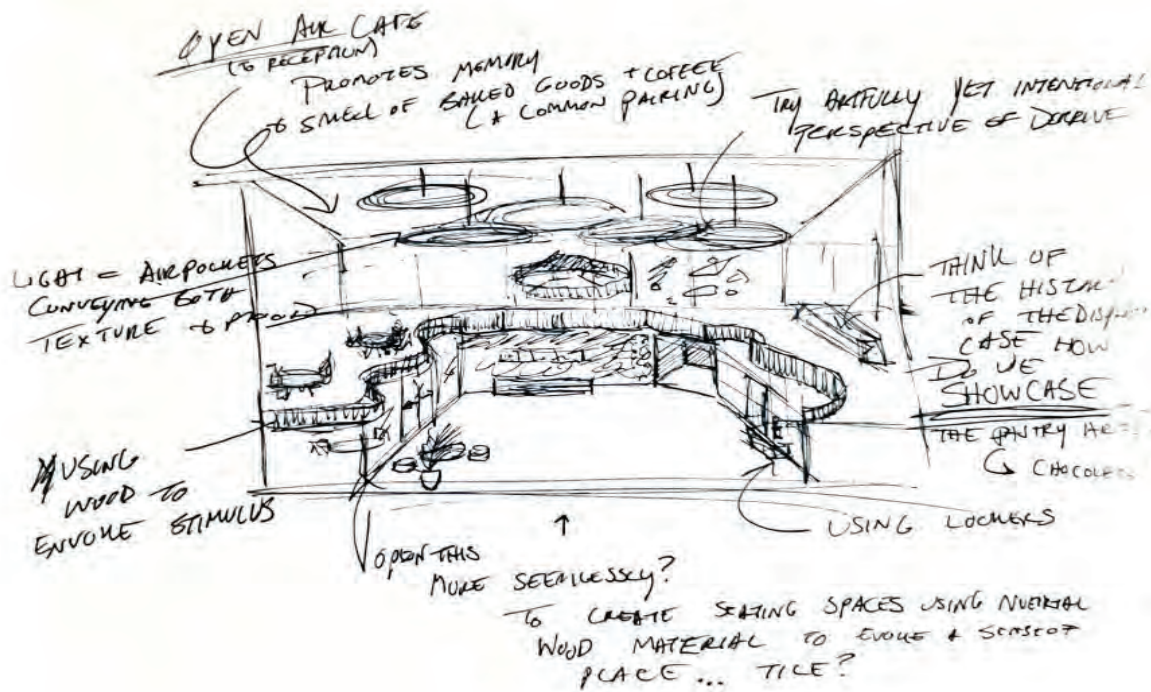 OPEN AIR CAFE
(TO RECEPTION)
PROMOTES MEMORY
SMELL OF BAKED GOODS + COFFEE
(A COMMON PAIRING)
TRY ARTFULLY YET INTENTIONAL
PERSPECTIVE OF
LIGHT = AIR POCKETS
CONVEYING BOTH
TEXTURE
THINK OF
THE HISTORY
OF THE DISPLAY
CASE HOW
DO WE
SHOWCASE
THE PANTRY
CHOCOLATE
USING
WOOD TO
ENVOKE STIMULUS
USING LOCKERS
OPEN THIS
MORE SEEMLESSLY?
TO CREATE SEATING SPACES USING NUETRAL
WOOD MATERIAL TO EVOKE A SENSE OF
PLACE... TILE?